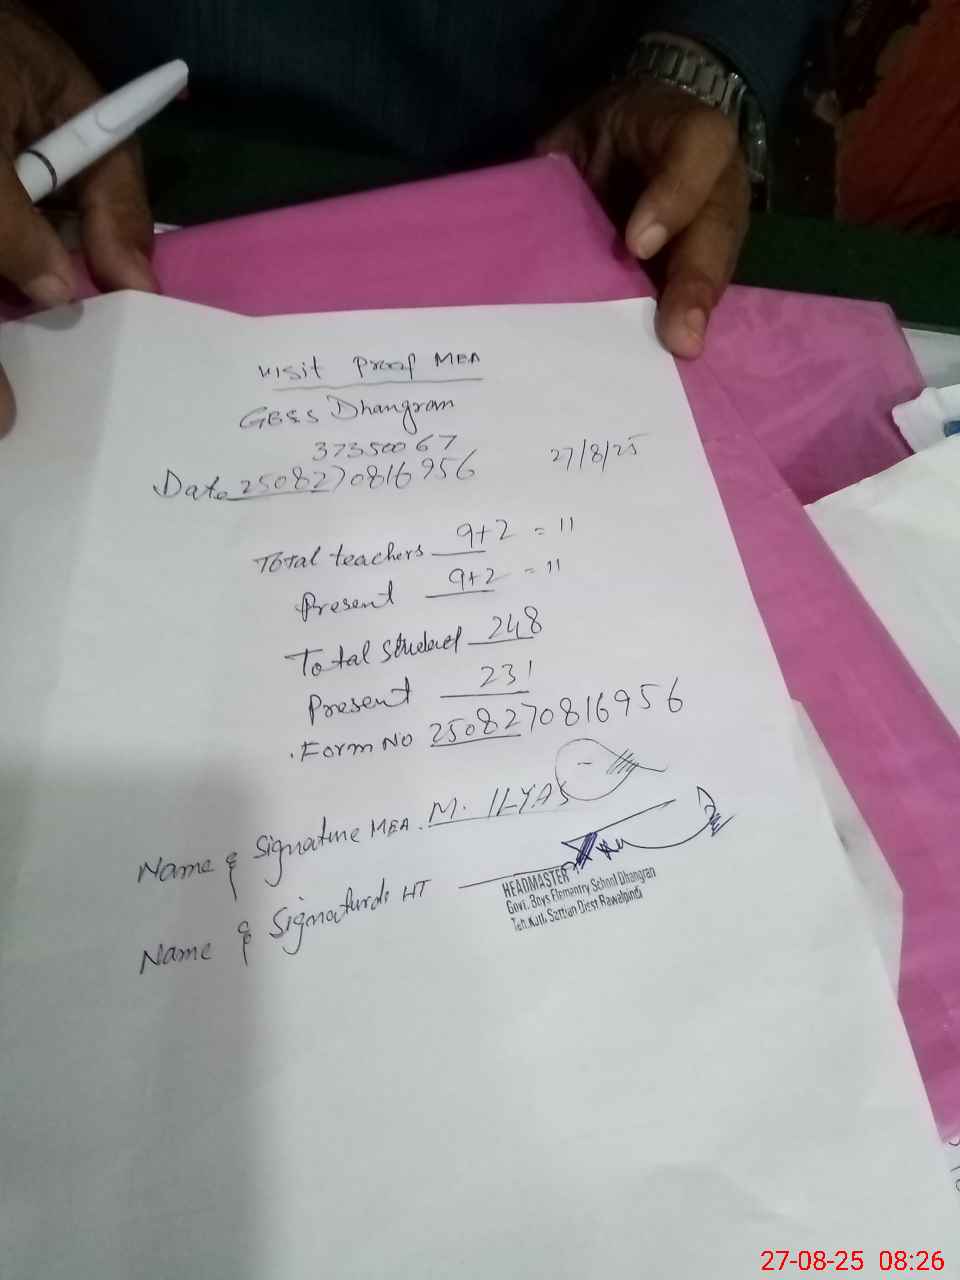 Visit Proof MEA
GBES Dhangran
37350067
Date 2508270816956 27/8/25
Total teachers 9+2 = 11
Present 9+2 = 11
Total Student 248
Present 231
Form No 2508270816956
Name & Signature MEA. M. ILYAS
Name & Signature HT
HEADMASTER
Govt. Boys Elementry School Dhangran
Teh. Kotli Sattian Distt Rawalpindi
27-08-25 08:26